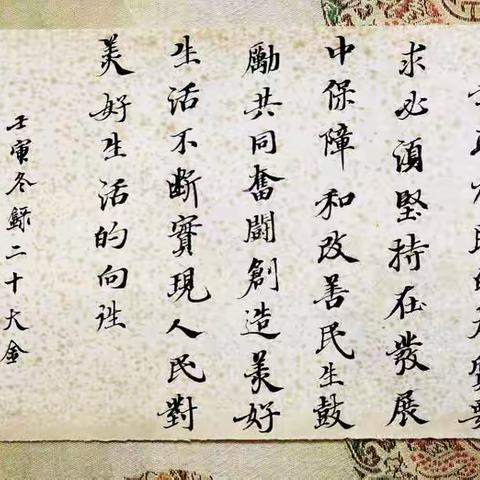 民的本質要
求必須堅持在發展
中保障和改善民生鼓
勵共同奮鬪創造美好
生活不斷實現人民對
美好生活的向往
壬寅冬錄二十大金